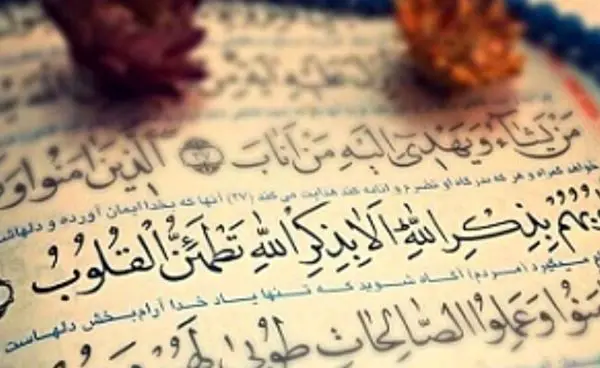 مَنْ يَشَاءُ وَيَهْدِي إِلَيْهِ مَنْ أَنَابَ ﴿٢٧﴾ الَّذِينَ آمَنُوا وَ
خواهد گمراه و هر که بدرگاه او تضرع و انابه کند هدایت می کند (۲۷) آنها که بخدا ایمان آورده و دلهاشا
وبُهُمْ بِذِكْرِ اللَّهِ أَلَا بِذِكْرِ اللَّهِ تَطْمَئِنُّ الْقُلُوبُ
میگیرد (مردم) آگاه شوید که تنها یاد خدا آرام‌بخش دلهاست
مَنُوا وَعَمِلُوا الصَّالِحَاتِ طُوبَى لَهُمْ